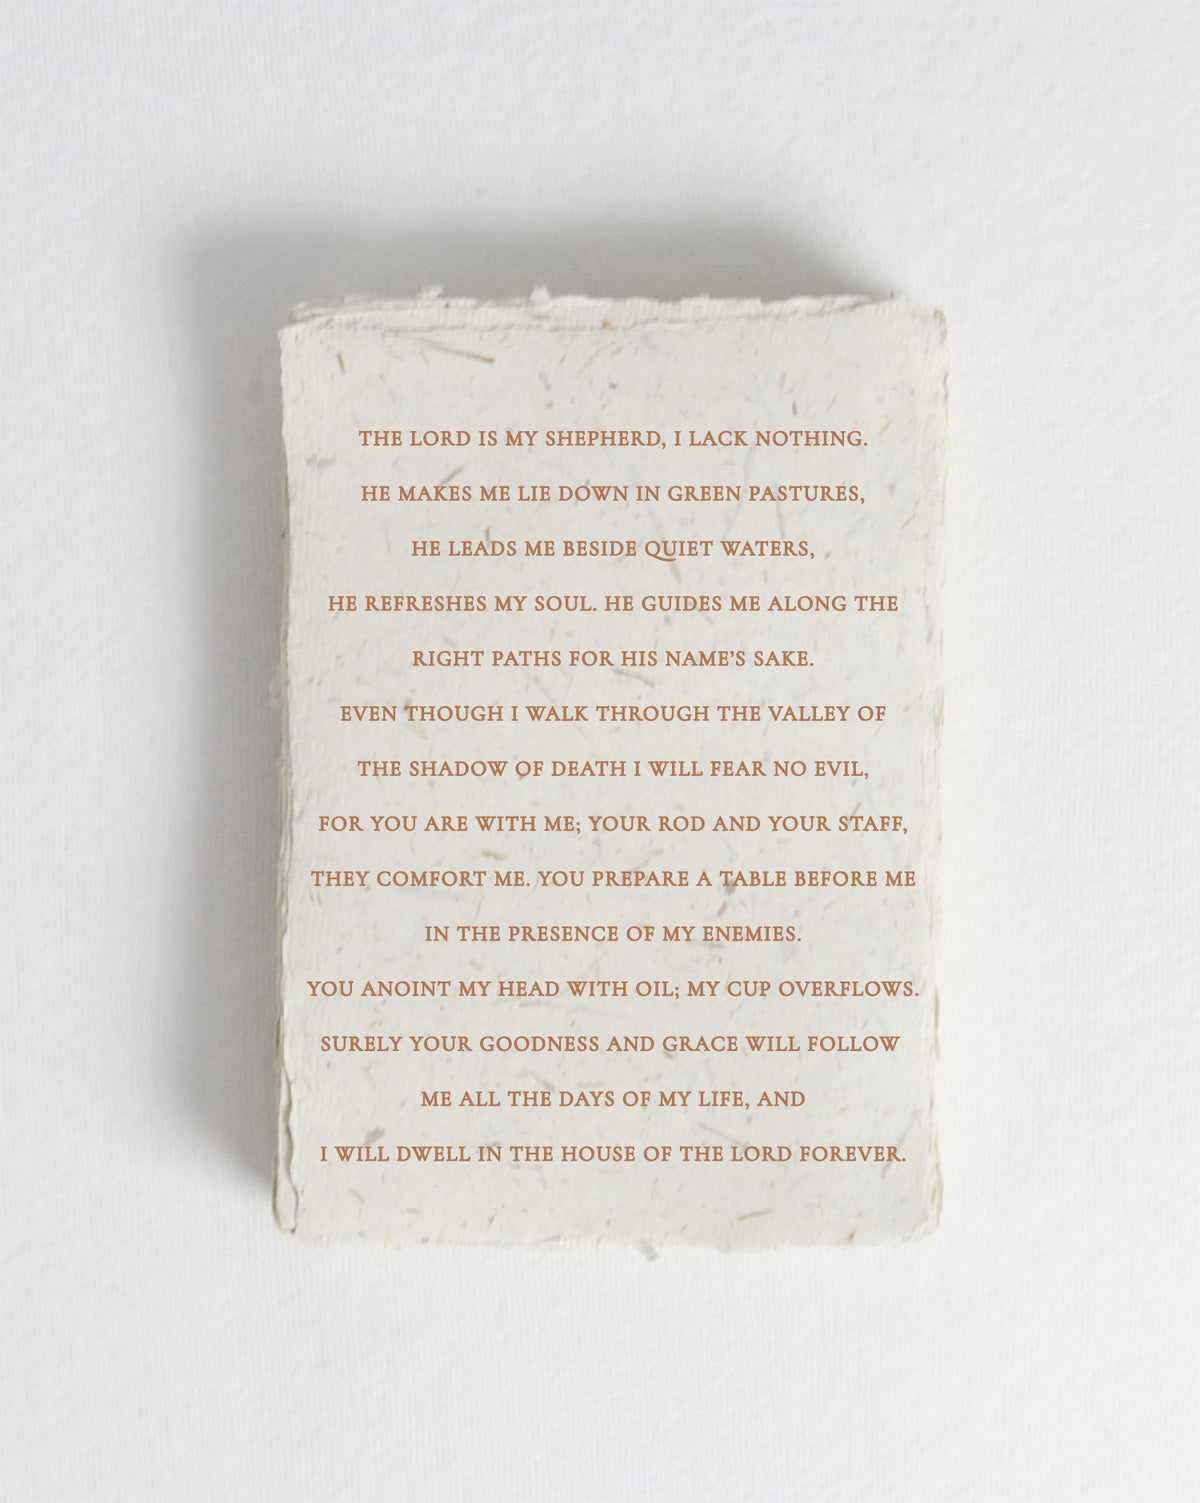 THE LORD IS MY SHEPHERD, I LACK NOTHING.
HE MAKES ME LIE DOWN IN GREEN PASTURES,
HE LEADS ME BESIDE QUIET WATERS,
HE REFRESHES MY SOUL. HE GUIDES ME ALONG THE
RIGHT PATHS FOR HIS NAME’S SAKE.
EVEN THOUGH I WALK THROUGH THE VALLEY OF
THE SHADOW OF DEATH I WILL FEAR NO EVIL,
FOR YOU ARE WITH ME; YOUR ROD AND YOUR STAFF,
THEY COMFORT ME. YOU PREPARE A TABLE BEFORE ME
IN THE PRESENCE OF MY ENEMIES.
YOU ANOINT MY HEAD WITH OIL; MY CUP OVERFLOWS.
SURELY YOUR GOODNESS AND GRACE WILL FOLLOW
ME ALL THE DAYS OF MY LIFE, AND
I WILL DWELL IN THE HOUSE OF THE LORD FOREVER.